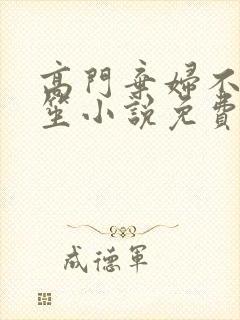 高門棄婦不
笙小說免費
成德軍